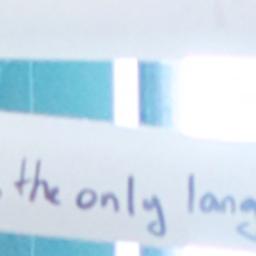 the only lang